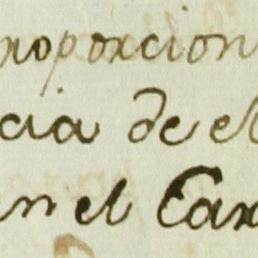 roporcion
cia de el
en el Car